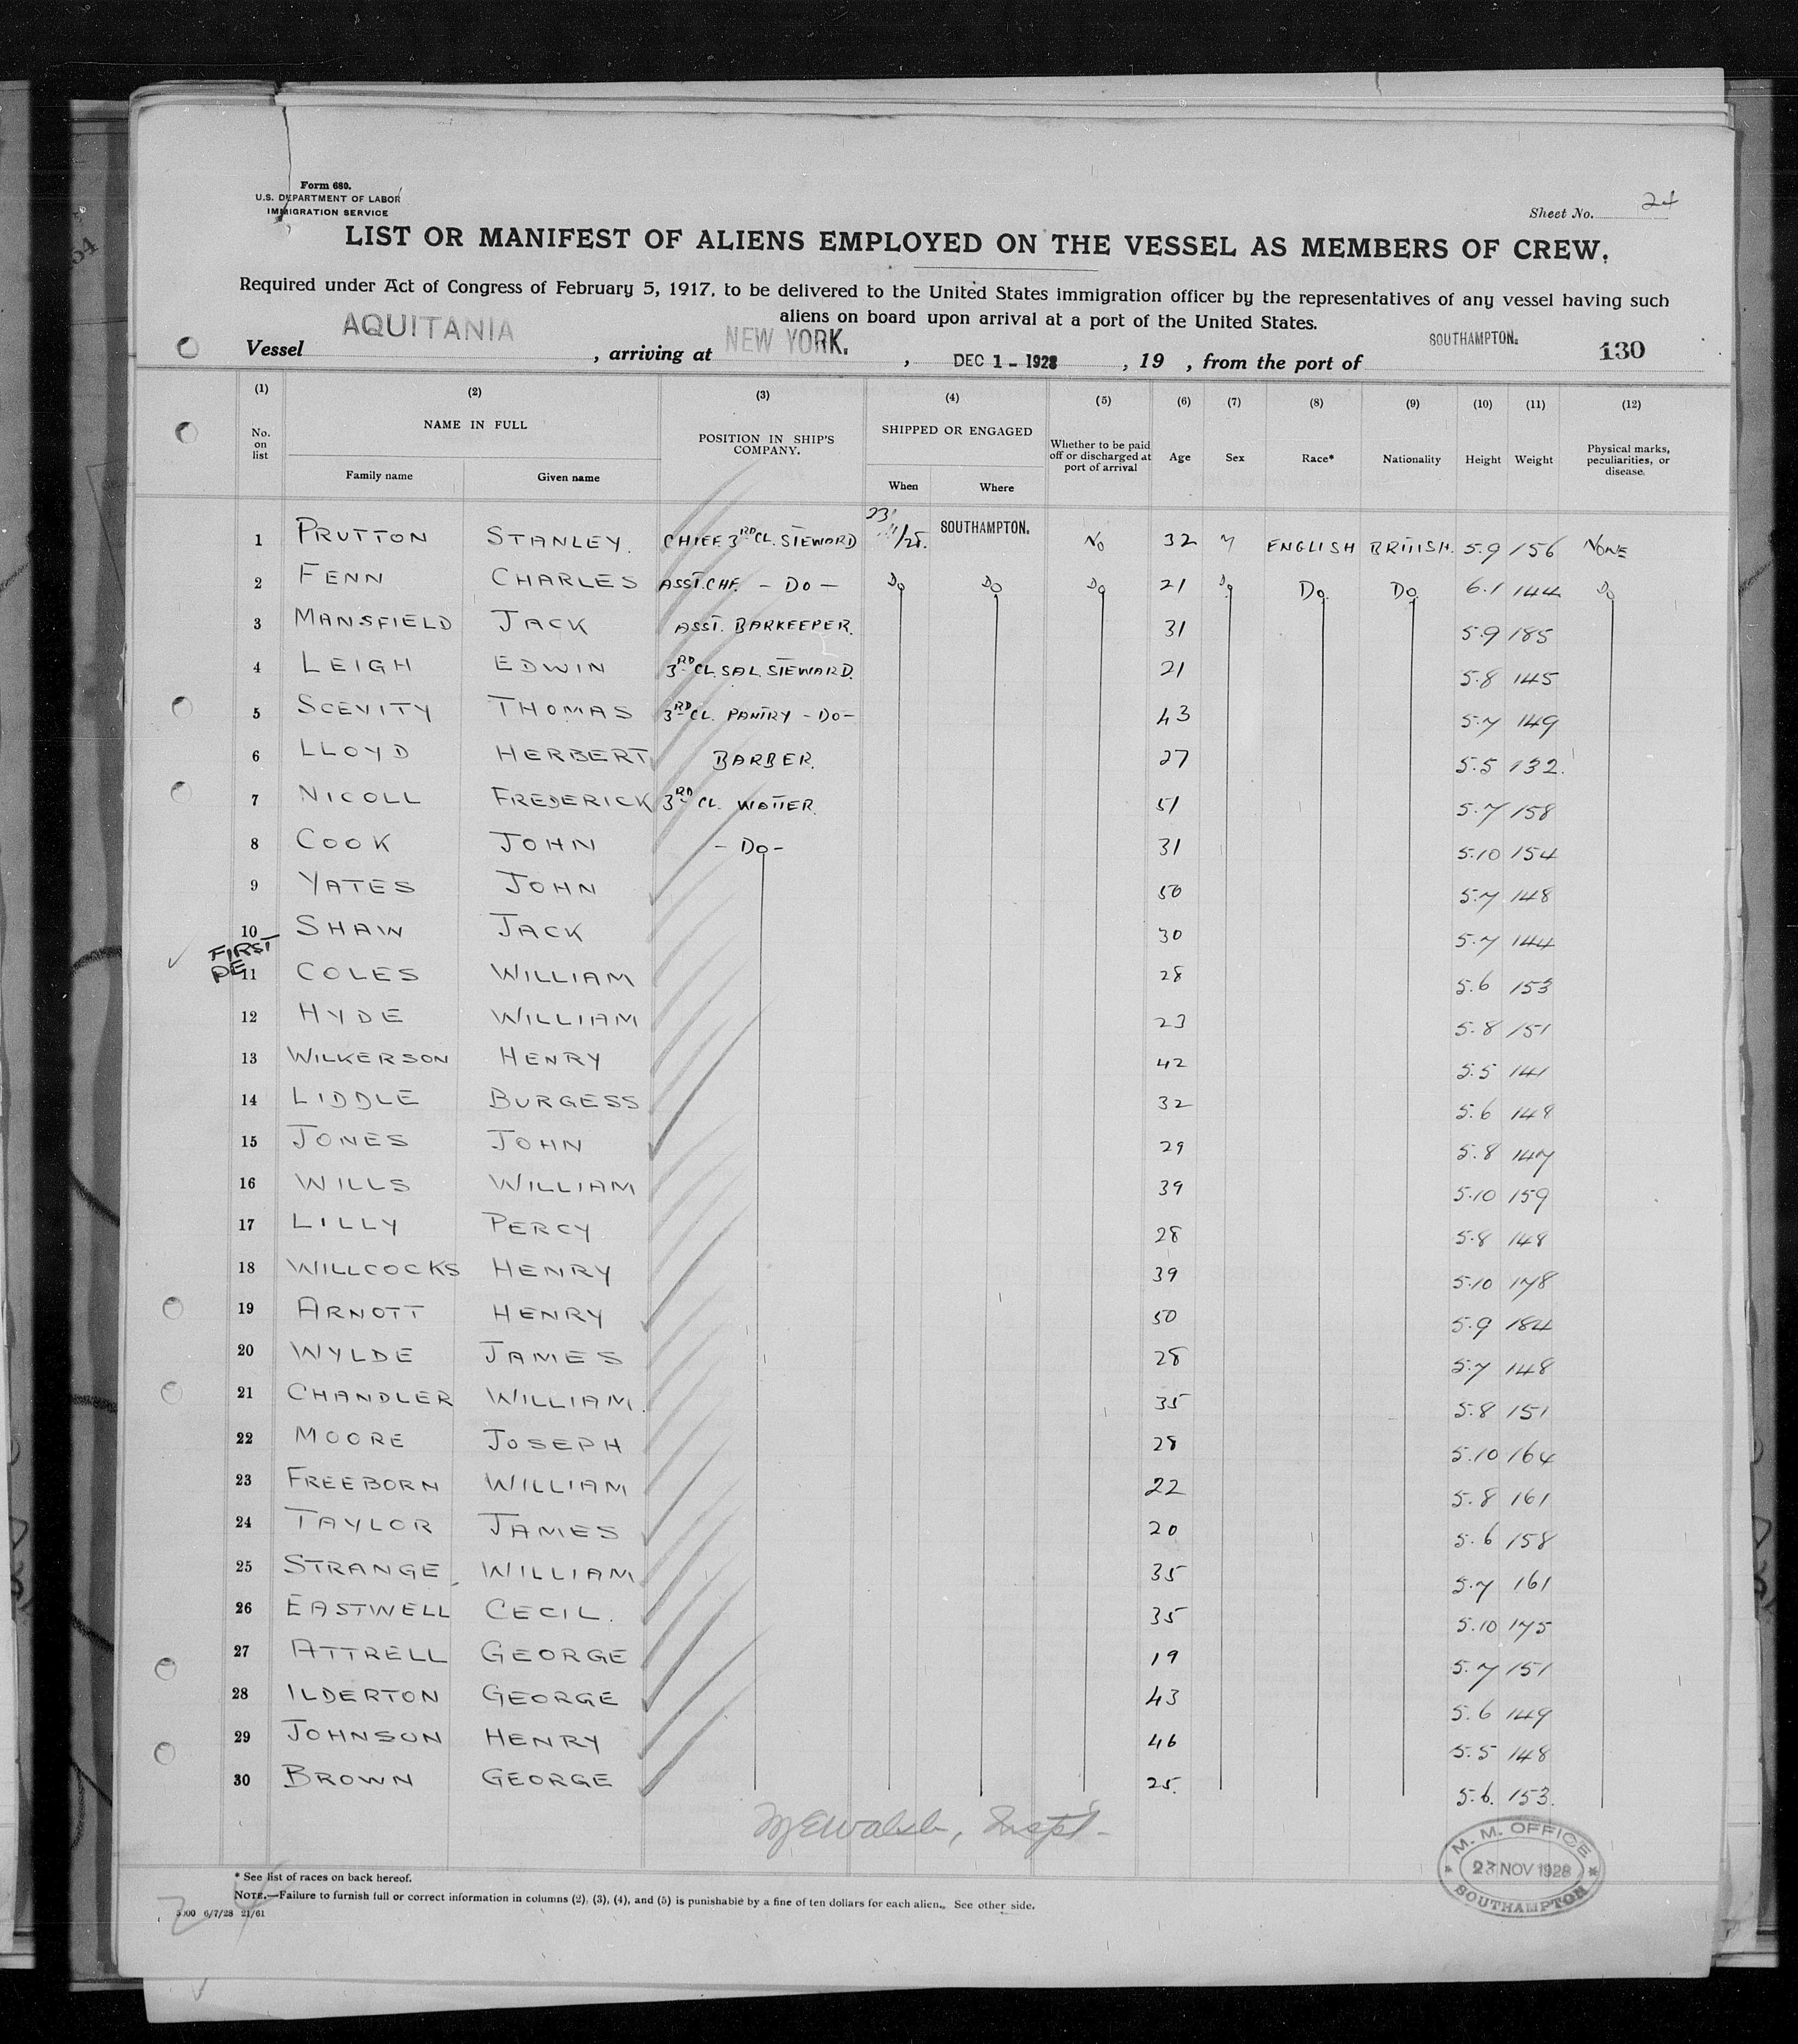 Form 680.
U.S. DEPARTMENT OF LABOR
IMMIGRATION SERVICE
Sheet No. 24
LIST OR MANIFEST OF ALIENS EMPLOYED ON THE VESSEL AS MEMBERS OF CREW.
Required under Act of Congress of February 5, 1917, to be delivered to the United States immigration officer by the representatives of any vessel having such
aliens on board upon arrival at a port of the United States.
Vessel AQUITANIA, arriving at NEW YORK., DEC 1 - 1928, 19 , from the port of SOUTHAMPTON. 130
(1) (2) (3) (4) (5) (6) (7) (8) (9) (10) (11) (12)
No. on list NAME IN FULL Family name Given name POSITION IN SHIP'S COMPANY. SHIPPED OR ENGAGED When Where Whether to be paid off or discharged at port of arrival Age Sex Race* Nationality Height Weight Physical marks, peculiarities, or disease.
1 PRUTTON STANLEY. CHIEF 3RD CL. STEWARD 23/11/28. SOUTHAMPTON. No 32 M ENGLISH BRITISH. 5.9 156 NONE
2 FENN CHARLES ASST. CHF. - DO - Do Do Do 21 Do Do. Do. 6.1 144 Do
3 MANSFIELD JACK ASST. BARKEEPER. 31 5.9 185
4 LEIGH EDWIN 3RD CL. SAL. STEWARD. 21 5.8 145
5 SCEVITY THOMAS 3RD CL. PANTRY - DO - 43 5.7 149
6 LLOYD HERBERT BARBER. 27 5.5 132.
7 NICOLL FREDERICK 3RD CL. WAITER. 51 5.7 158
8 COOK JOHN - Do - 31 5.10 154
9 YATES JOHN 50 5.7 148
10 SHAW JACK 30 5.7 144
FIRST
11 COLES WILLIAM 28 5.6 153
12 HYDE WILLIAM 23 5.8 151
13 WILKERSON HENRY 42 5.5 141
14 LIDDLE BURGESS 32 5.6 148
15 JONES JOHN 29 5.8 147
16 WILLS WILLIAM 39 5.10 159
17 LILLY PERCY 28 5.8 148
18 WILLCOCKS HENRY 39 5.10 178
19 ARNOTT HENRY 50 5.9 184
20 WYLDE JAMES 28 5.7 148
21 CHANDLER WILLIAM. 35 5.8 151
22 MOORE JOSEPH 28 5.10 164
23 FREEBORN WILLIAM 22 5.8 161
24 TAYLOR JAMES 20 5.6 158
25 STRANGE WILLIAM 35 5.7 161
26 EASTWELL CECIL. 35 5.10 175
27 ATTRELL GEORGE 19 5.7 151
28 ILDERTON GEORGE 43 5.6 149
29 JOHNSON HENRY 46 5.5 148
30 BROWN GEORGE 25. 5.6. 153.
Walsh, Inspt.
M. M. OFFICE
23 NOV 1928
SOUTHAMPTON
* See list of races on back hereof.
NOTE.—Failure to furnish full or correct information in columns (2), (3), (4), and (5) is punishable by a fine of ten dollars for each alien. See other side.
5000 6/7/28 21/61